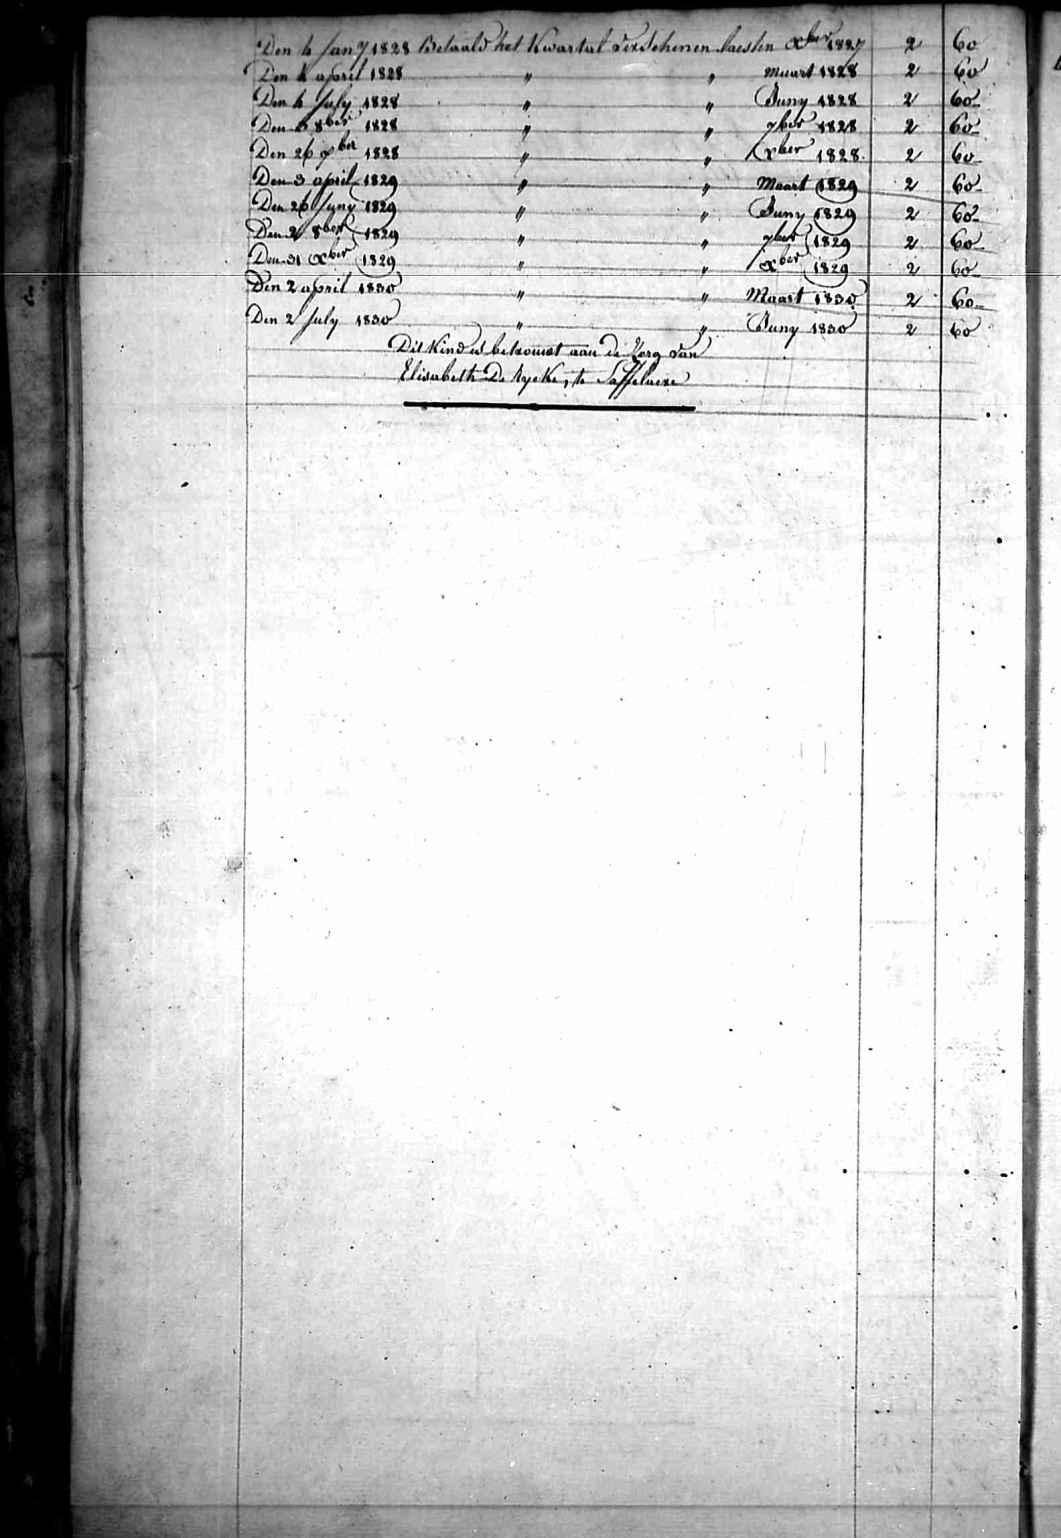 Den 4 Jany 1828 Betaald het Kwartal verschenen laesten Xber 1827 2 60
Den 4 april 1828 " " maart 1828 2 60
Den 4 July 1828 " " Juny 1828 2 60
Den 3 8ber 1828 " " 7ber 1828 2 60
Den 26 9ber 1828 " " Xber 1828 2 60
Den 3 april 1829 " " Maart 1829 2 60
Den 26 Juny 1829 " " Juny 1829 2 60
Den 2 8ber 1829 " " 7ber 1829 2 60
Den 31 Xber 1829 " " Xber 1829 2 60
Den 2 april 1830 " " Maart 1830 2 60
Den 2 July 1830 " " Juny 1830 2 60
Dit Kind is betrouwt aan de Zorg van
Elisabeth De Rycke, te Saffelaere